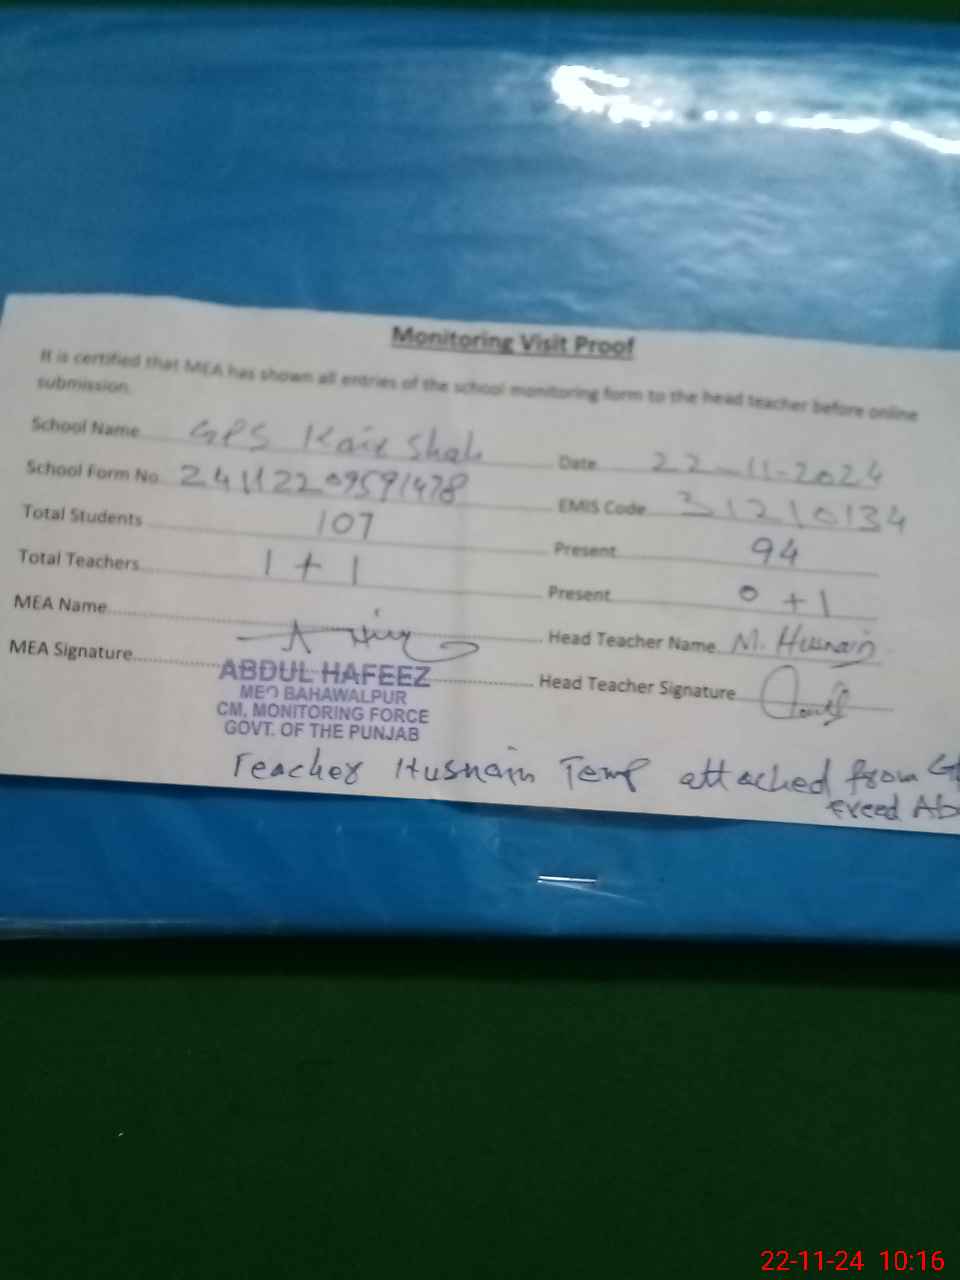 Monitoring Visit Proof
It is certified that MEA has shown all entries of the school monitoring form to the head teacher before online
submission.
School Name GPS Kair Shah Date 22-11-2024
School Form No 24112209591478 EMIS Code 31210134
Total Students 107 Present 94
Total Teachers 1 + 1 Present 0 + 1
MEA Name Head Teacher Name M. Husnain
MEA Signature Head Teacher Signature
ABDUL HAFEEZ
MEO BAHAWALPUR
CM, MONITORING FORCE
GOVT. OF THE PUNJAB
Teacher Husnain Temp attached from
22-11-24 10:16